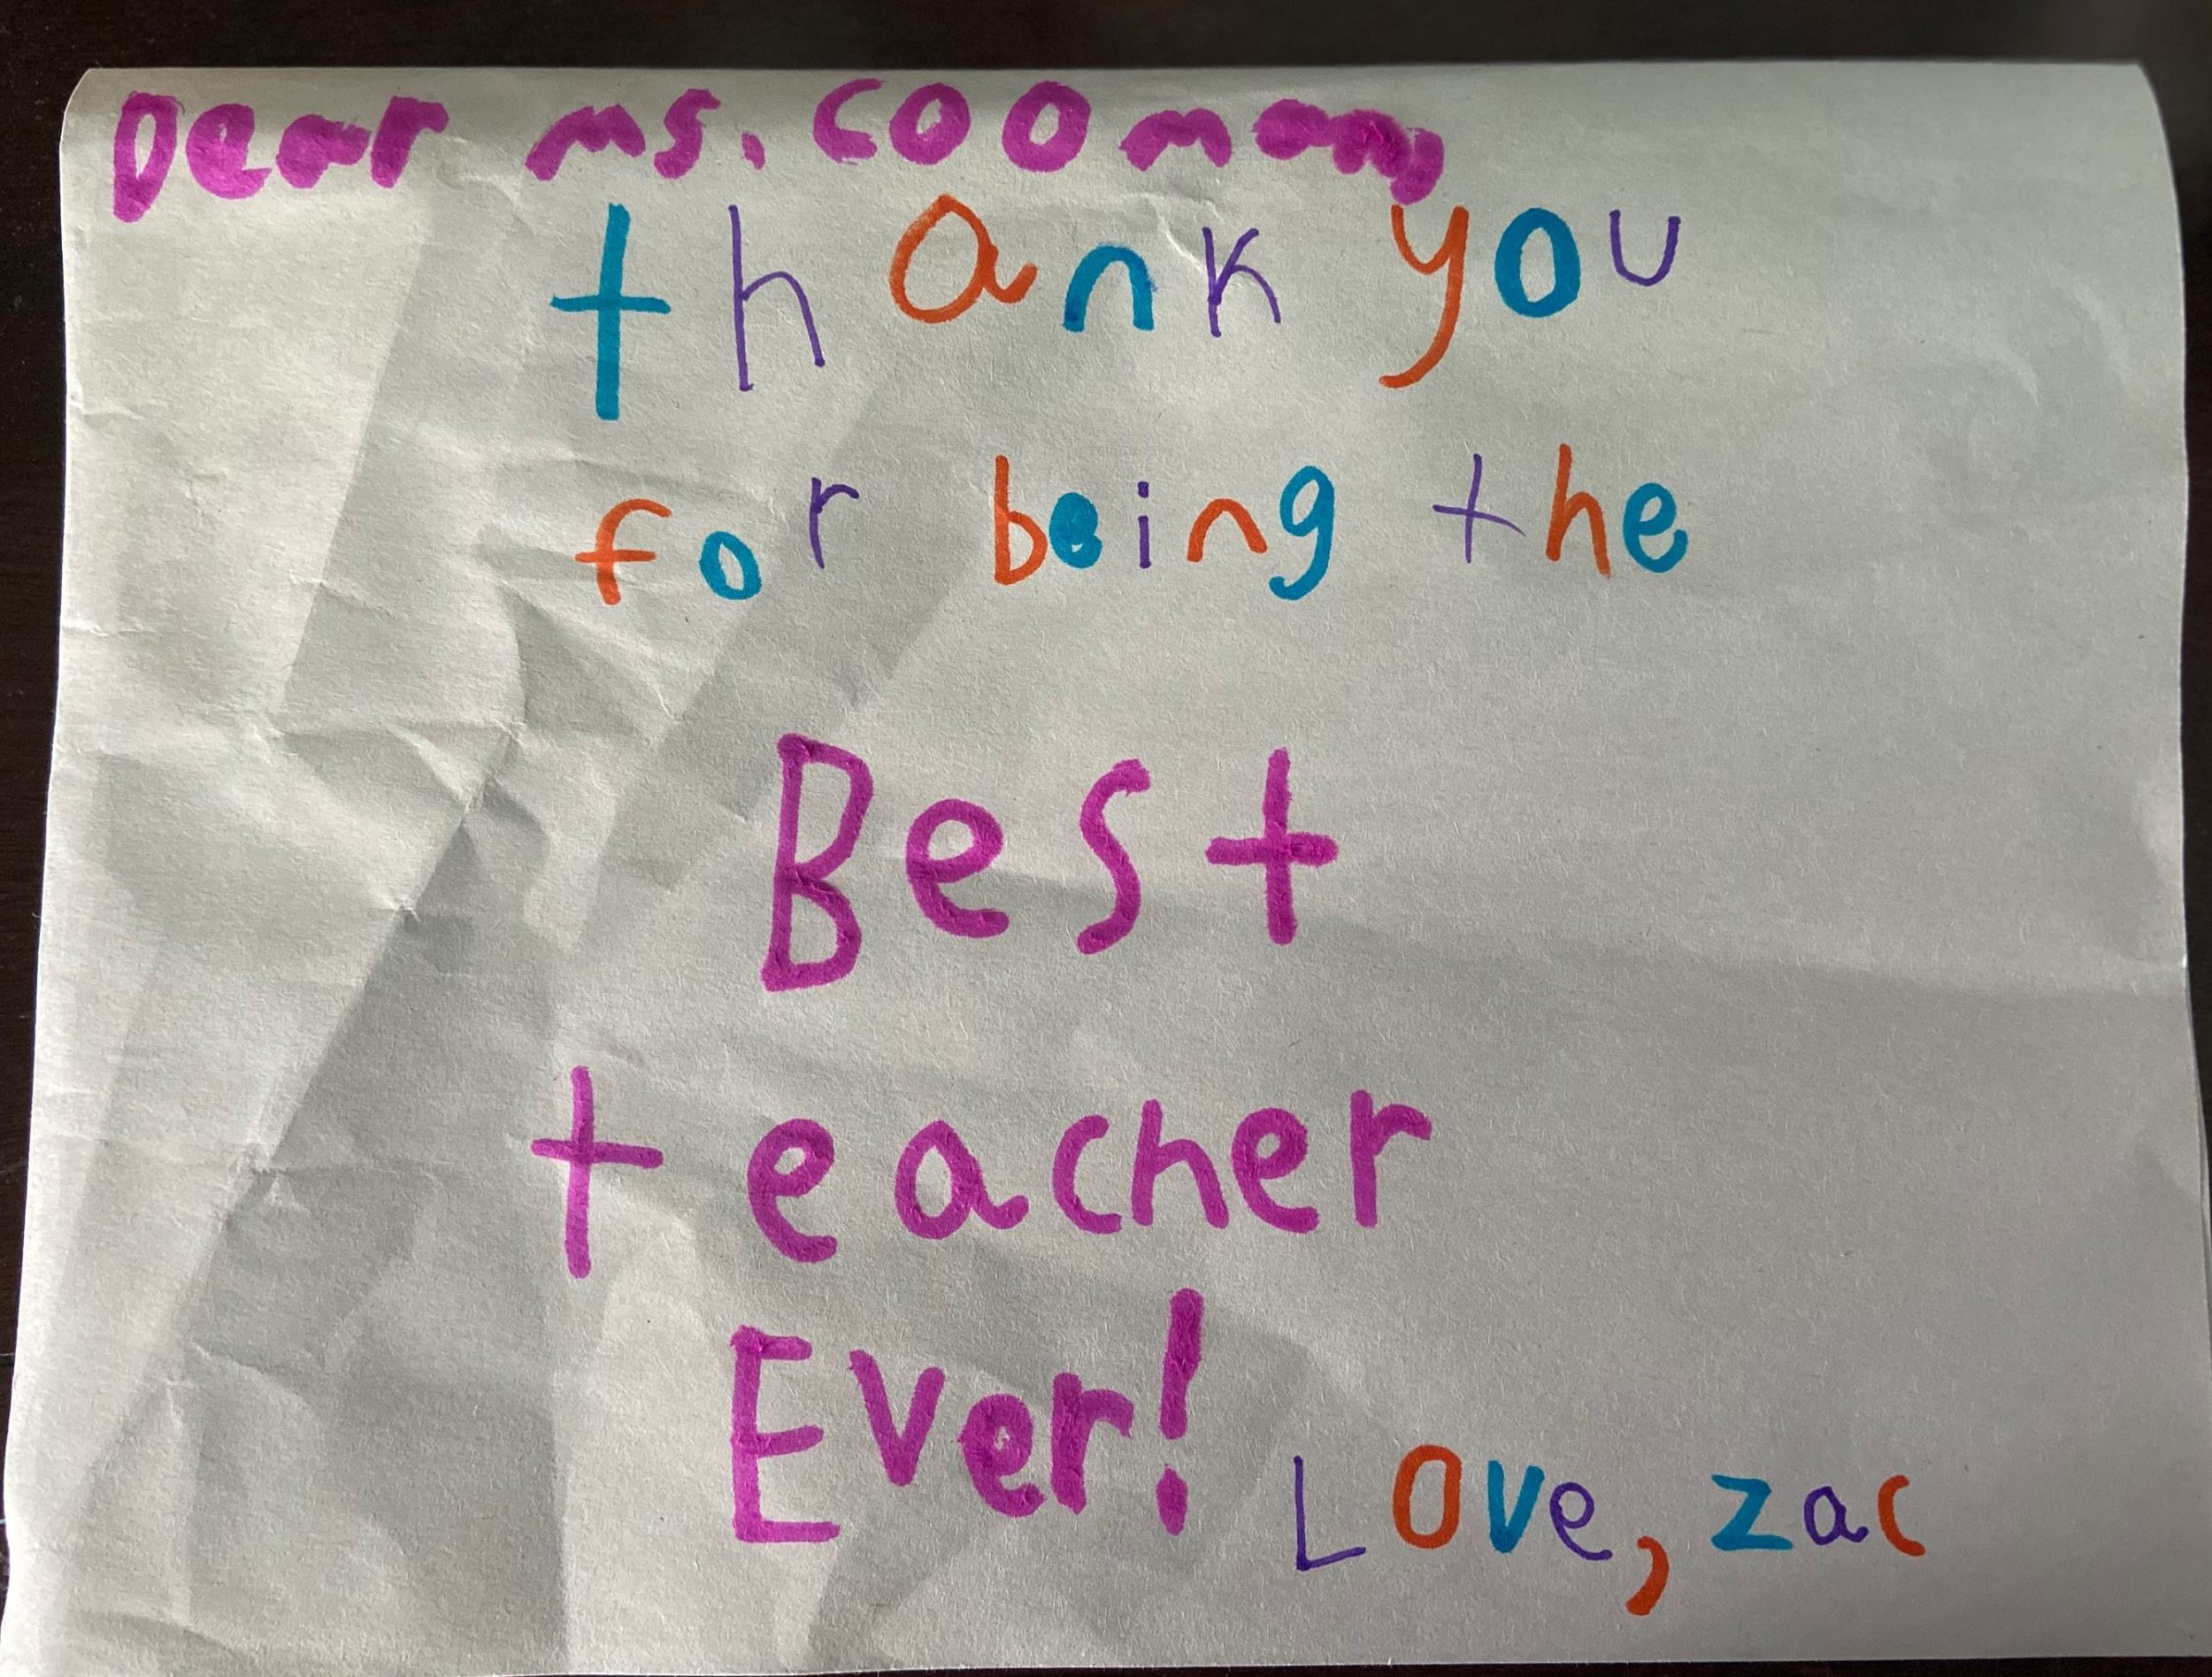 Dear ms. Cooman,
thank you
for being the
Best
teacher
Ever!
Love, zac